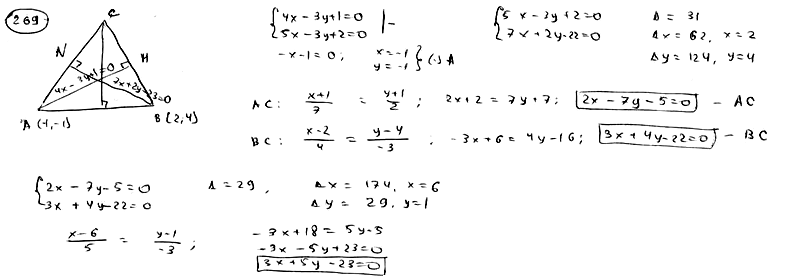 269
C
N
M
4x - 3y+1=0
7x+2y-23=0
A (-1,-1)
B (2,4)
{4x - 3y+1=0 | -
{5x - 3y+2=0
-x-1=0; x=-1
y=-1 } (·) A
{5x - 3y+2=0 Δ = 31
{7x + 2y-22=0 Δx = 62, x=2
Δy = 124, y=4
AC: x+1/7 = y+1/2 ; 2x+2 = 7y+7; 2x - 7y-5=0 - AC
BC: x-2/4 = y-4/-3 ; -3x+6 = 4y-16; 3x + 4y-22=0 - BC
{2x - 7y-5=0 Δ = 29, Δx = 174, x=6
{3x + 4y-22=0 Δy = 29, y=1
x-6/5 = y-1/-3 ; -3x+18 = 5y-5
-3x - 5y+23=0
3x+5y-23=0